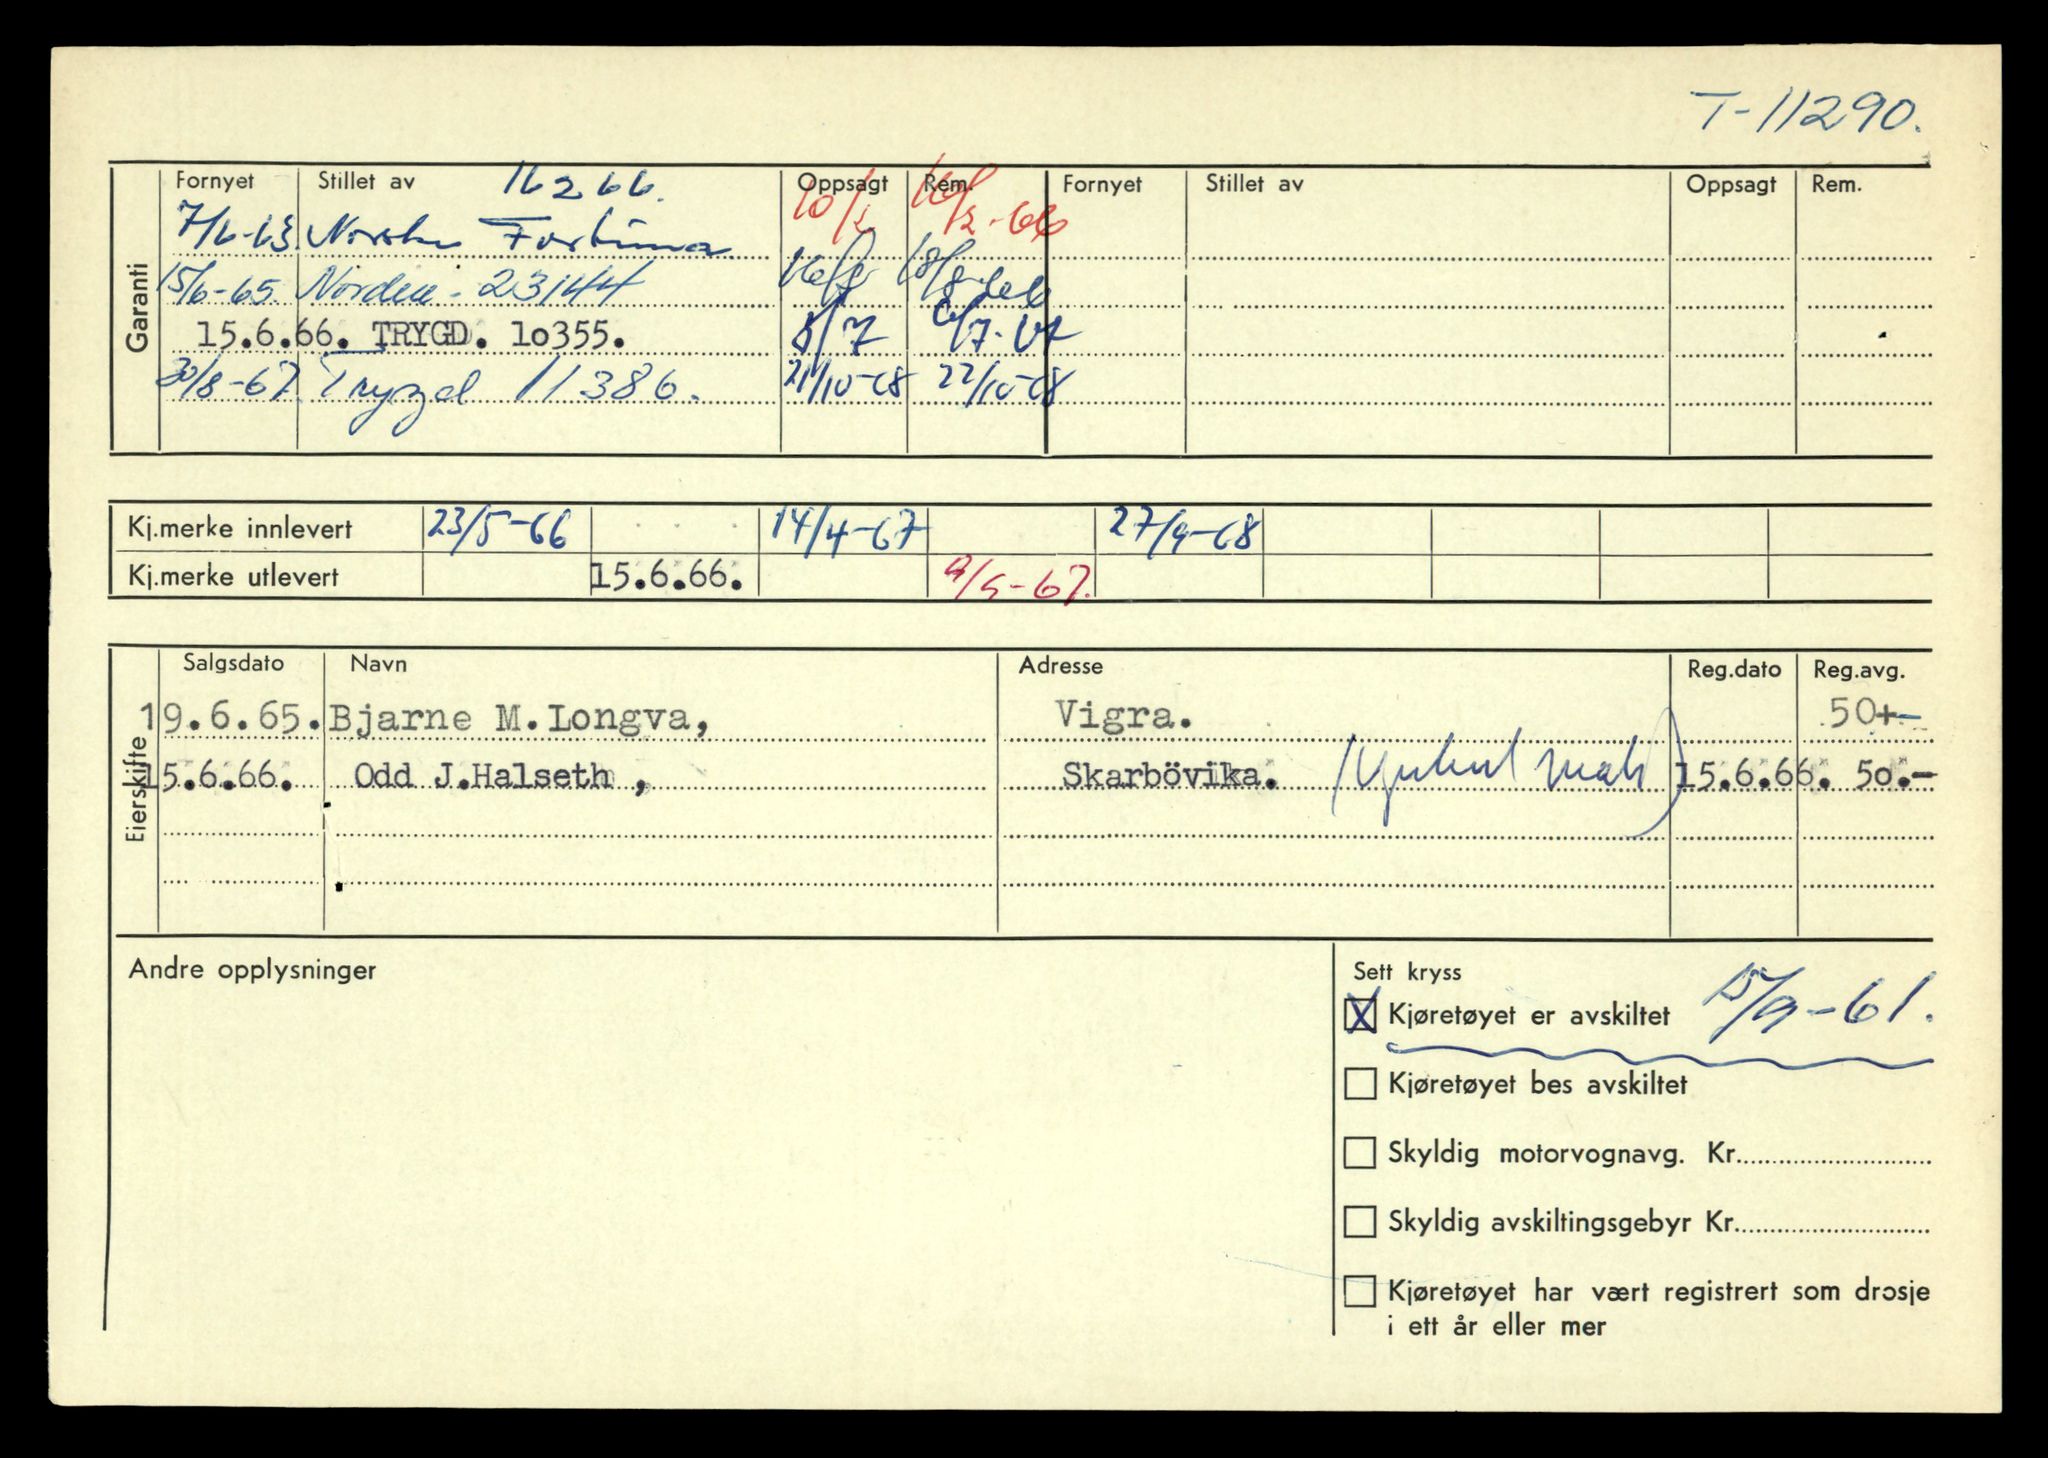 T-11290.
Garanti
Fornyet Stillet av 16266. Oppsagt Rem. Fornyet Stillet av Oppsagt Rem.
7/6-63 Norske Fortuna 10/2 -66
15/6-65. Norden - 23144
15.6.66. TRYGD. 1o355. 8/7
30/8-67 Trygd 11386. 21/10-68 22/10-68
Kj.merke innlevert 23/5-66 14/4-67 27/9-68
Kj.merke utlevert 15.6.66. 9/5-67.
Eierskifte
Salgsdato Navn Adresse Reg.dato Reg.avg.
19.6.65. Bjarne M.Longva, Vigra. 50+-
15.6.66. Odd J.Halseth , Skarbövika. 15.6.66. 5o.-
Andre opplysninger
Sett kryss
X Kjøretøyet er avskiltet 15/9-61.
Kjøretøyet bes avskiltet
Skyldig motorvognavg. Kr.
Skyldig avskiltingsgebyr Kr.
Kjøretøyet har vært registrert som drosje
i ett år eller mer